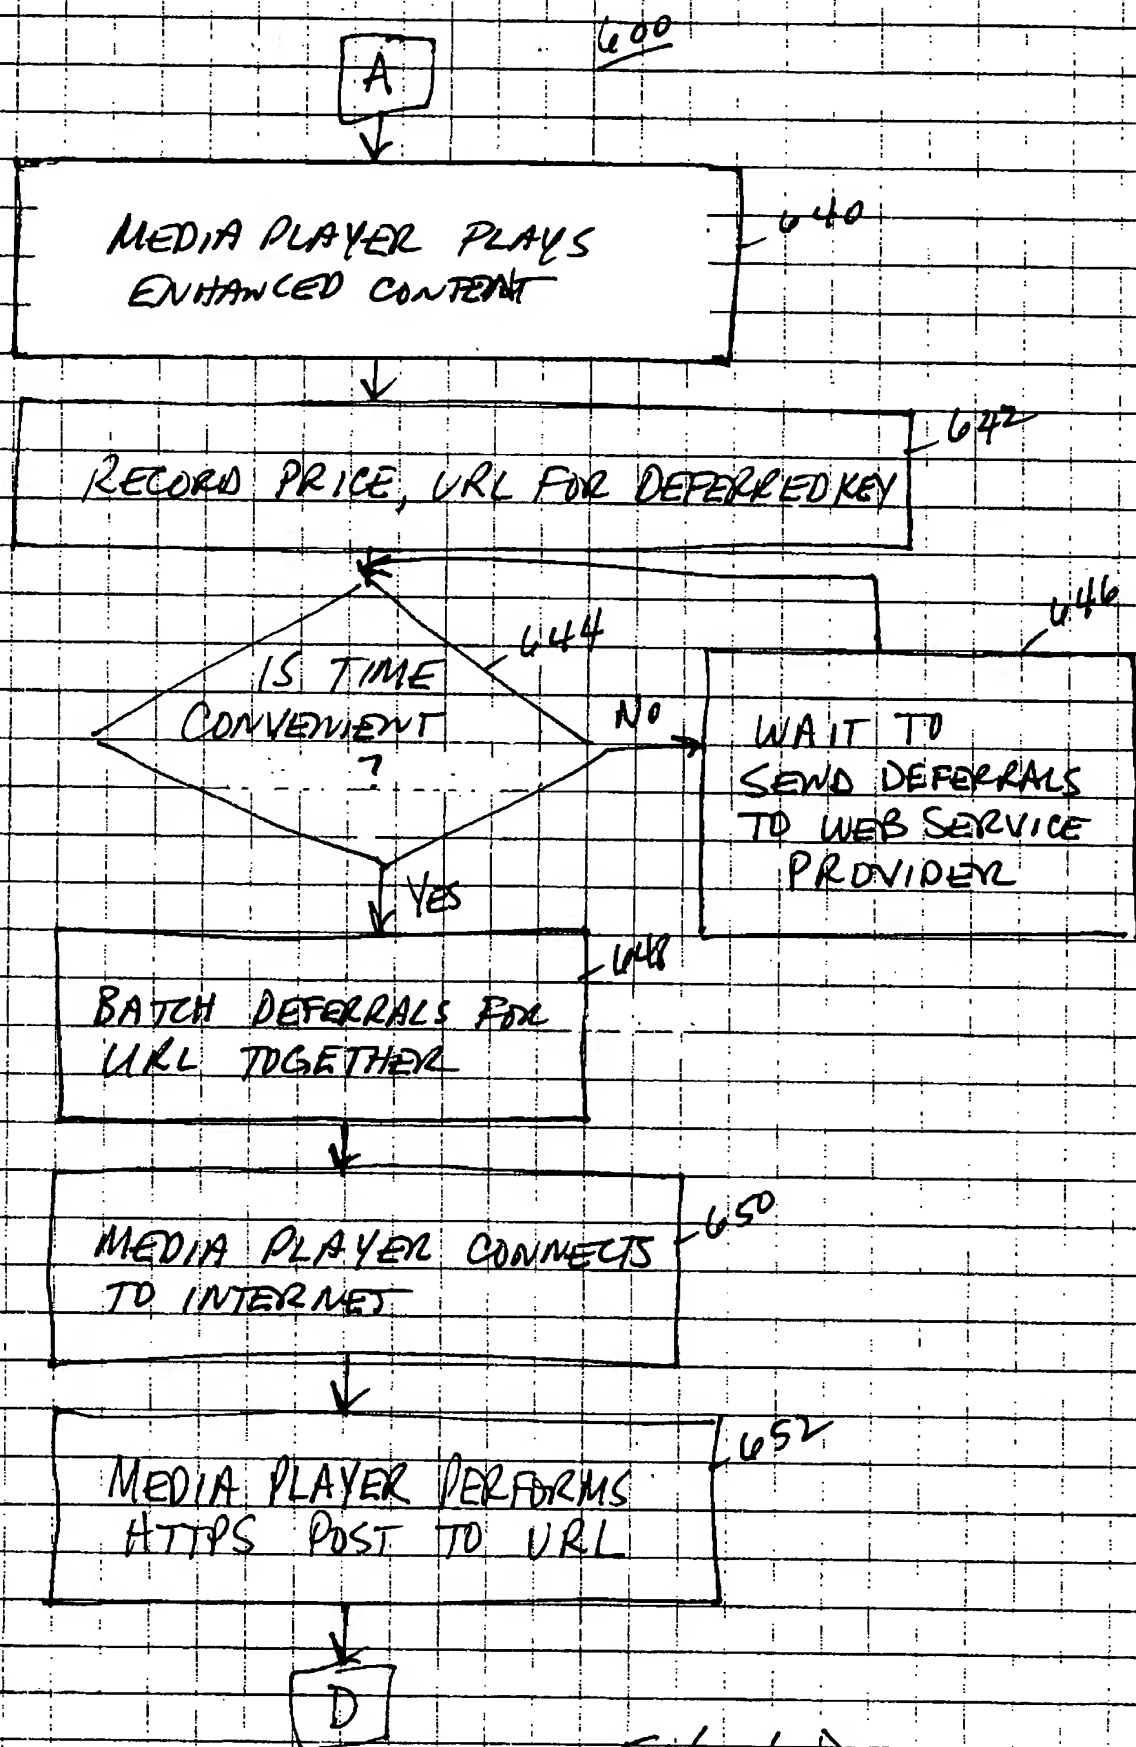 600
A
MEDIA PLAYER PLAYS
ENHANCED CONTENT
640
RECORD PRICE, URL FOR DEFERRED KEY
642
IS TIME
CONVENIENT
?
644
NO
646
WAIT TO
SEND DEFERRALS
TO WEB SERVICE
PROVIDER
YES
BATCH DEFERRALS FOR
URL TOGETHER
648
MEDIA PLAYER CONNECTS
TO INTERNET
650
MEDIA PLAYER PERFORMS
HTTPS POST TO URL
652
D